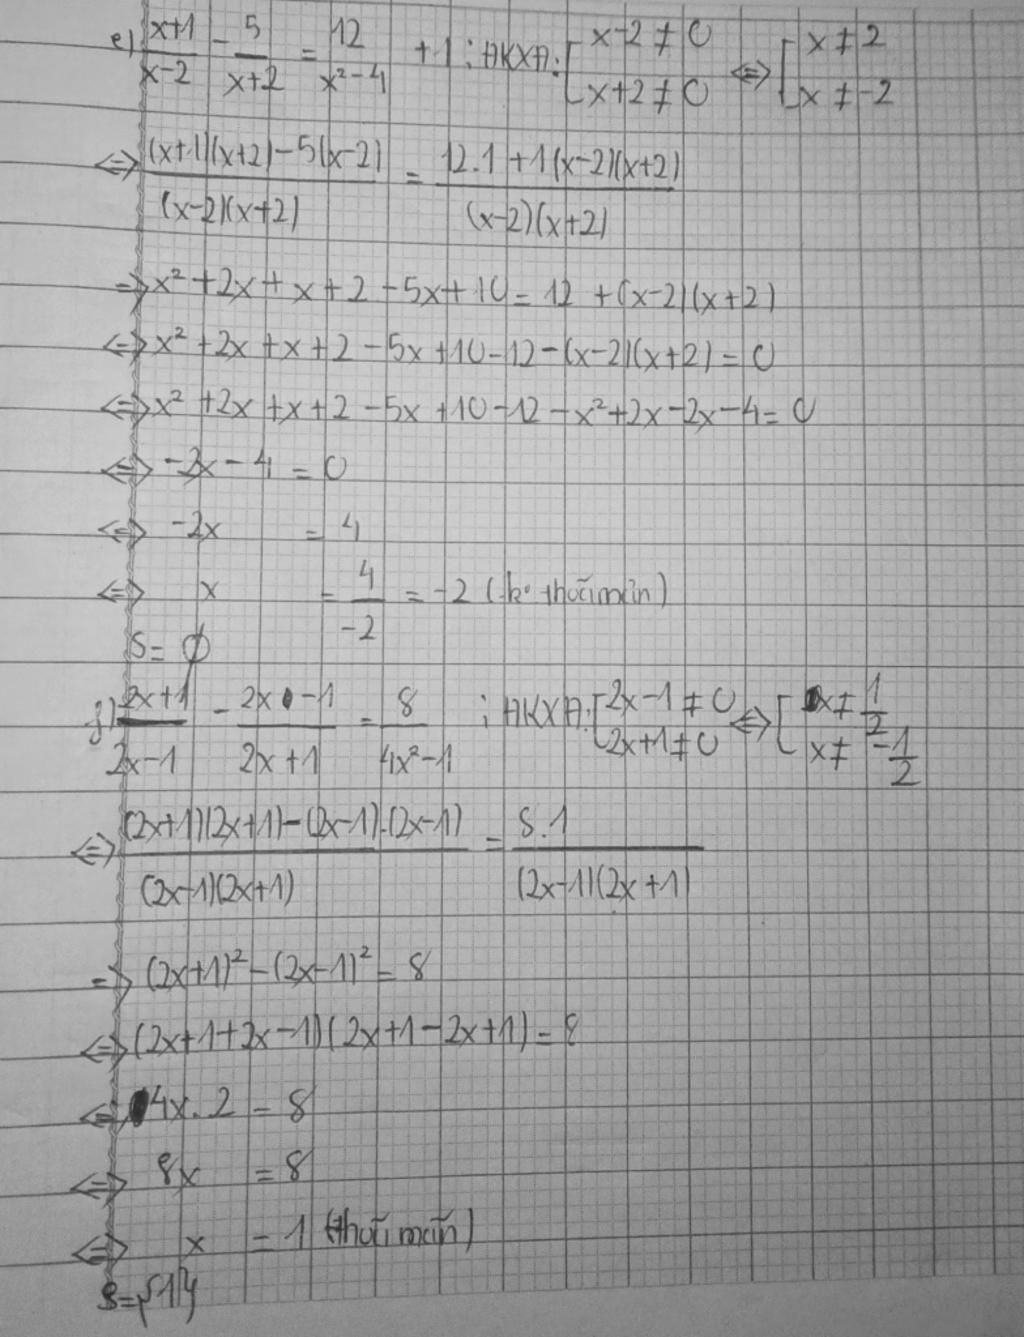 e) \frac{x+1}{x-2} - \frac{5}{x+2} = \frac{12}{x²-4} + 1 ; ĐKXĐ: [x-2 ≠ 0 ; x+2 ≠ 0 <=> [x ≠ 2 ; x ≠ -2
<=> \frac{(x+1)(x+2)-5(x-2)}{(x-2)(x+2)} = \frac{12.1+1(x-2)(x+2)}{(x-2)(x+2)}
=> x² + 2x + x + 2 - 5x + 10 = 12 + (x-2)(x+2)
<=> x² + 2x + x + 2 - 5x + 10 - 12 - (x-2)(x+2) = 0
<=> x² + 2x + x + 2 - 5x + 10 - 12 - x² + 2x - 2x - 4 = 0
<=> -2x - 4 = 0
<=> -2x = 4
<=> x = \frac{4}{-2} = -2 (k° thoãi mãn)
S = ∅
f) \frac{2x+1}{2x-1} - \frac{2x-1}{2x+1} = \frac{8}{4x²-1} ; ĐKXĐ: [2x-1 ≠ 0 ; 2x+1 ≠ 0 <=> [x ≠ \frac{1}{2} ; x ≠ -\frac{1}{2}
<=> \frac{(2x+1)(2x+1)-(2x-1).(2x-1)}{(2x-1)(2x+1)} = \frac{8.1}{(2x-1)(2x+1)}
=> (2x+1)² - (2x-1)² = 8
<=> (2x+1+2x-1)(2x+1-2x+1) = 8
<=> 4x.2 = 8
<=> 8x = 8
<=> x = 1 (thoãi mãn)
S = {1}